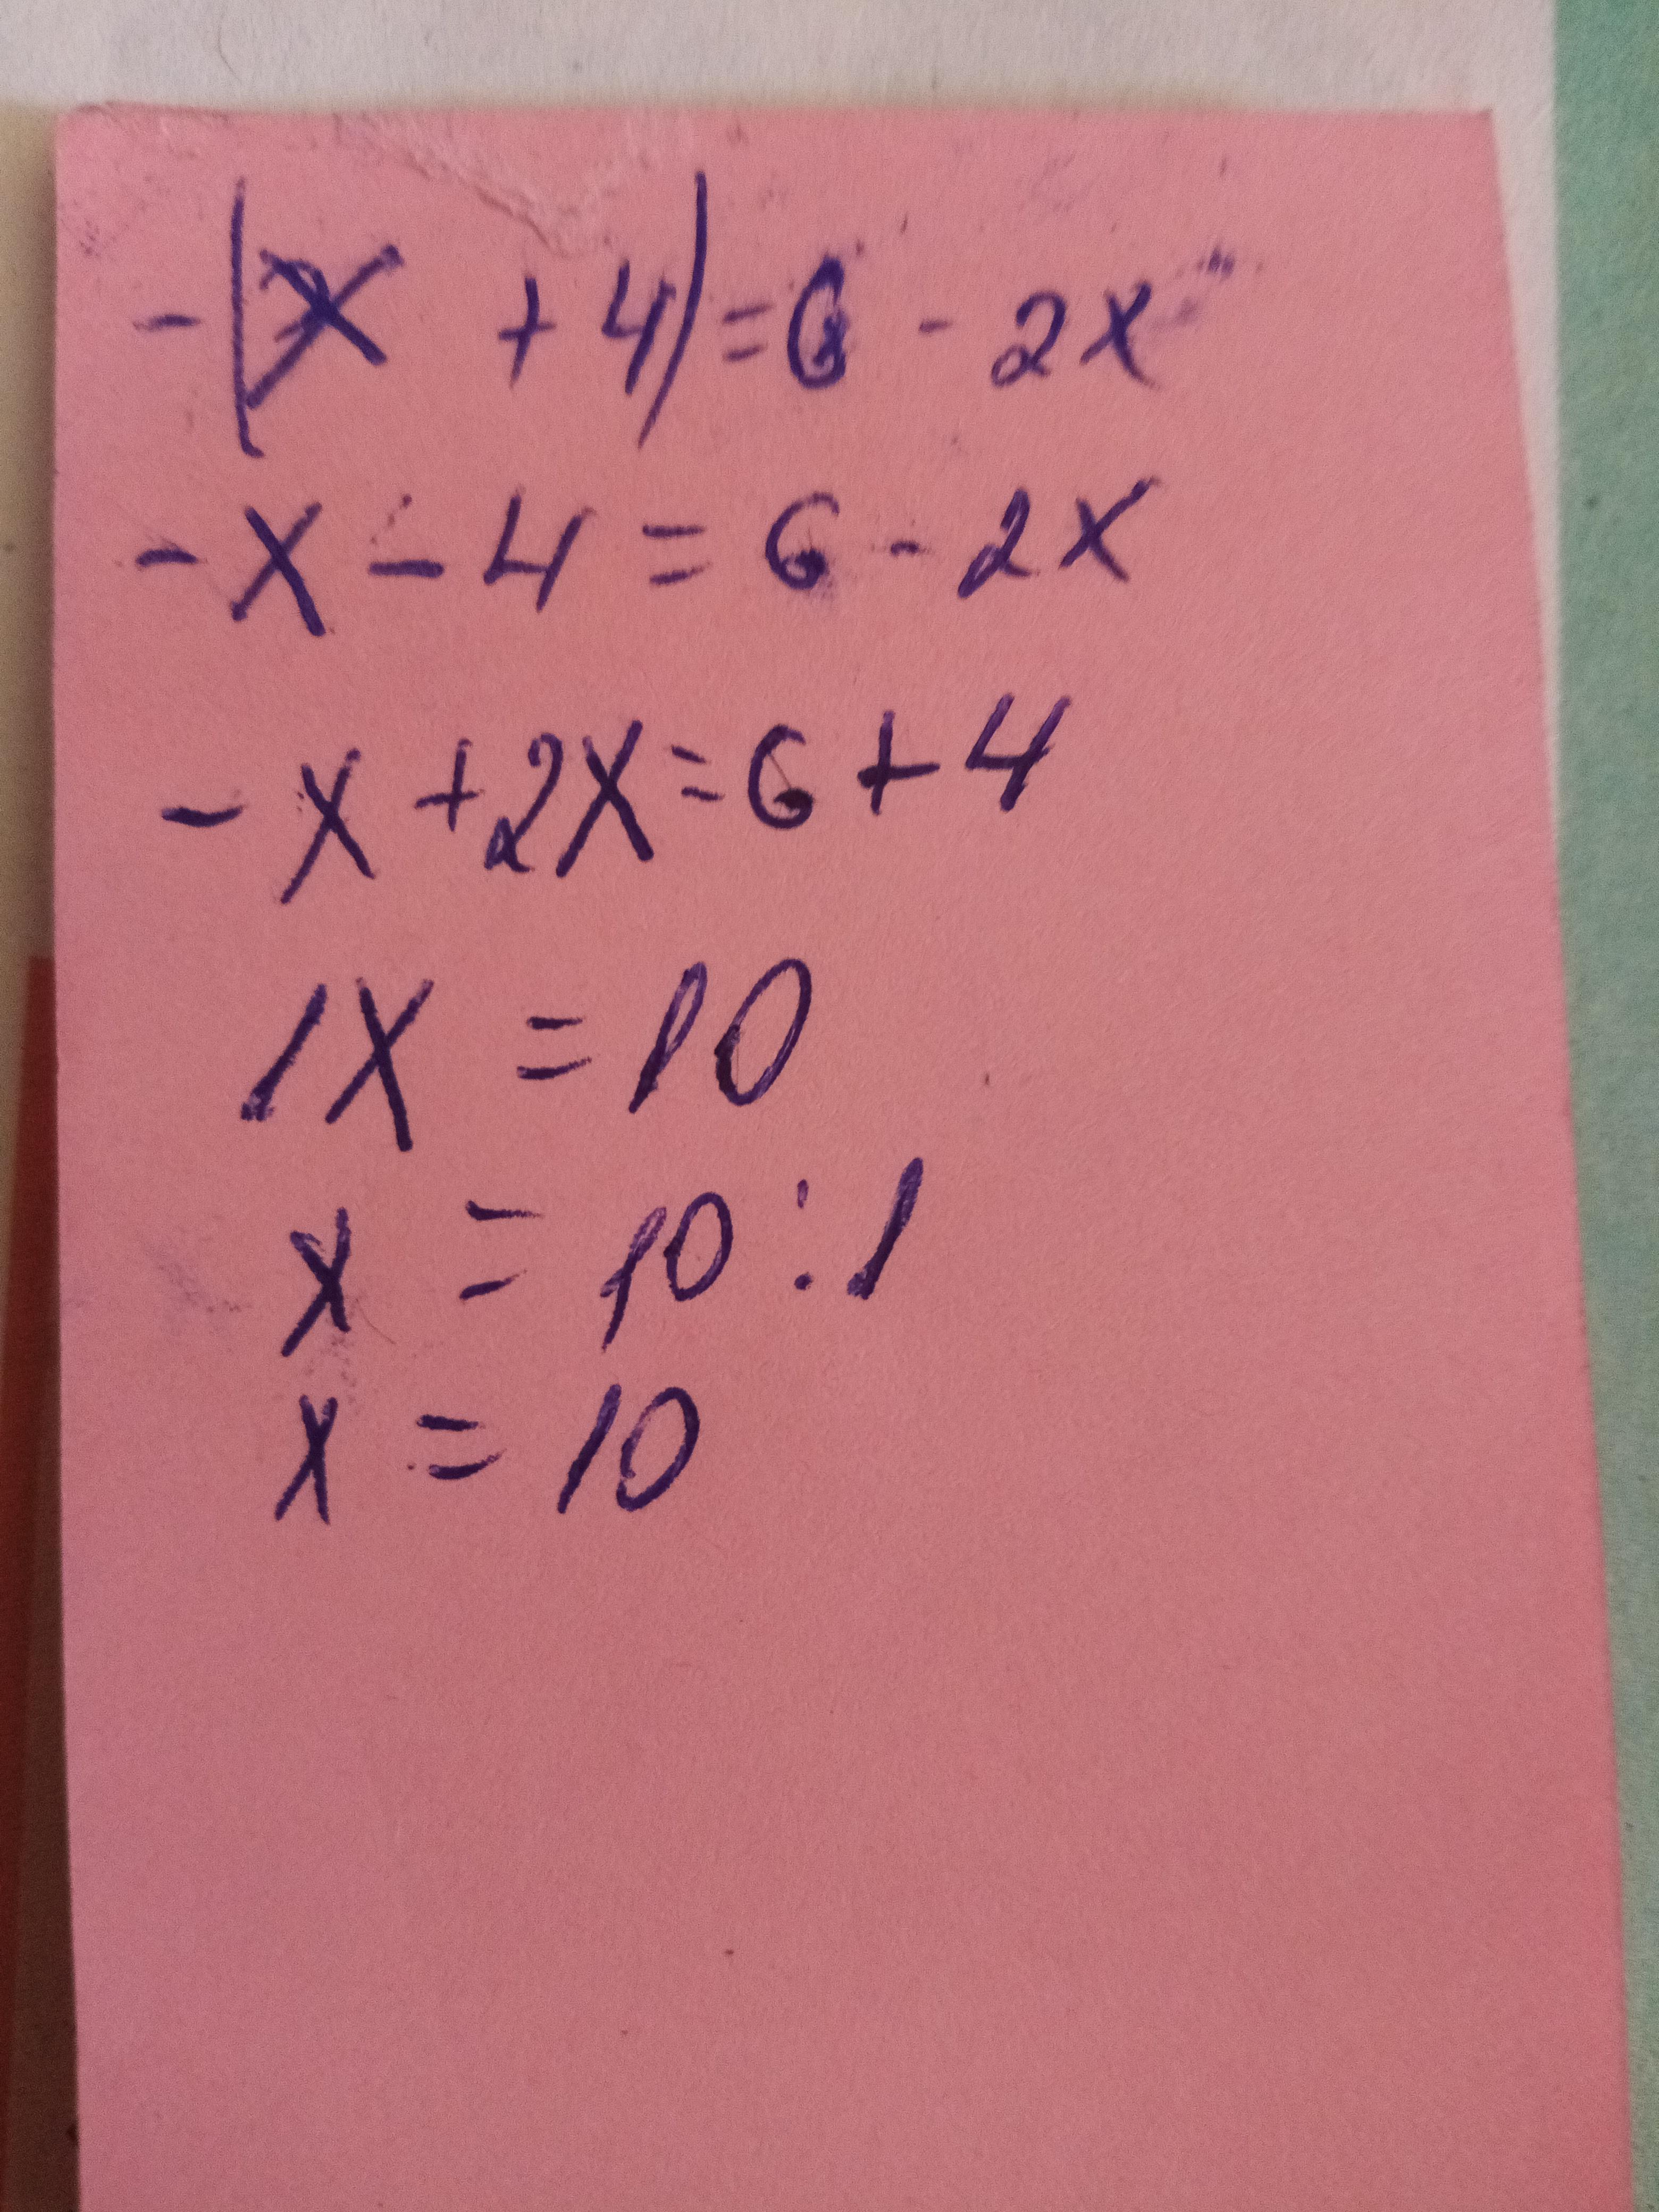 -(x + 4) = 6 - 2x
-x - 4 = 6 - 2x
-x + 2x = 6 + 4
1x = 10
x = 10 : 1
x = 10